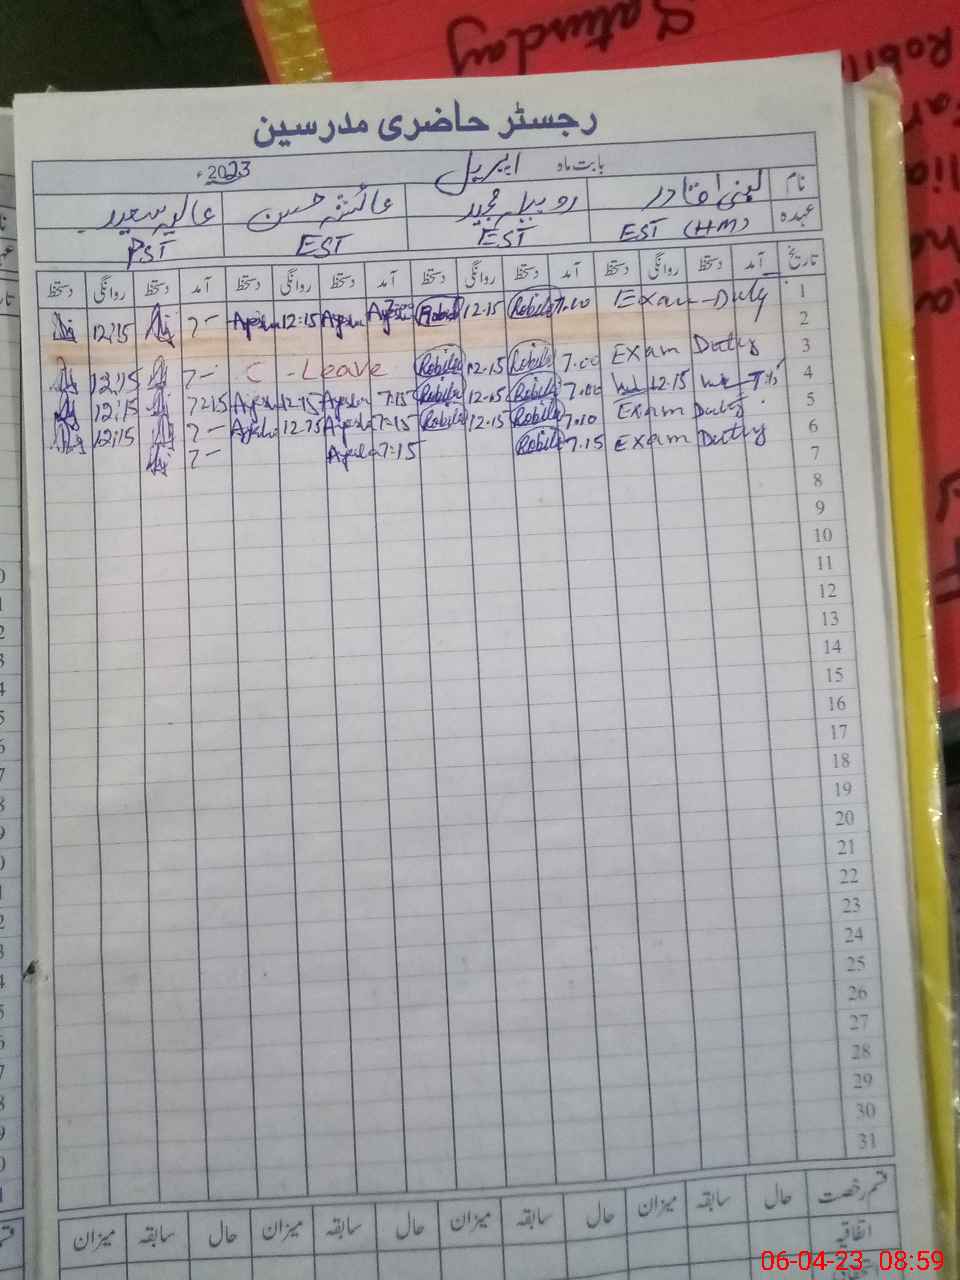 Saturday
رجسٹر حاضری مدرسین
بابت ماہ اپریل 2023ء
نام لبنیٰ قادر روبیلہ مجید عائشہ حسین عالیہ سعید
عہدہ EST (HM) EST EST PST
تاریخ آمد دستخط روانگی دستخط آمد دستخط روانگی دستخط آمد دستخط روانگی دستخط آمد دستخط روانگی دستخط
1 Exam Duty 7.00 Robila 12.15 Robila Ayesha 12:15 Ayesha 7- 12:15
2
3 Exam Duty 7.00 Robila 12.15 Robila C-Leave 7- 12:15
4 7:15 12.15 7.00 Robila 12.15 Robila 7:15 Ayesha 12:15 Ayesha 7:15 12:15
5 Exam Duty 7.10 Robila 12.15 Robila 7:15 Ayesha 12:15 Ayesha 7- 12:15
6 Exam Duty 7.15 Robila 7:15 Ayesha 7-
7
8
9
10
11
12
13
14
15
16
17
18
19
20
21
22
23
24
25
26
27
28
29
30
31
قسم رخصت حال سابقہ میزان حال سابقہ میزان حال سابقہ میزان حال سابقہ میزان
اتفاقیہ
06-04-23 08:59